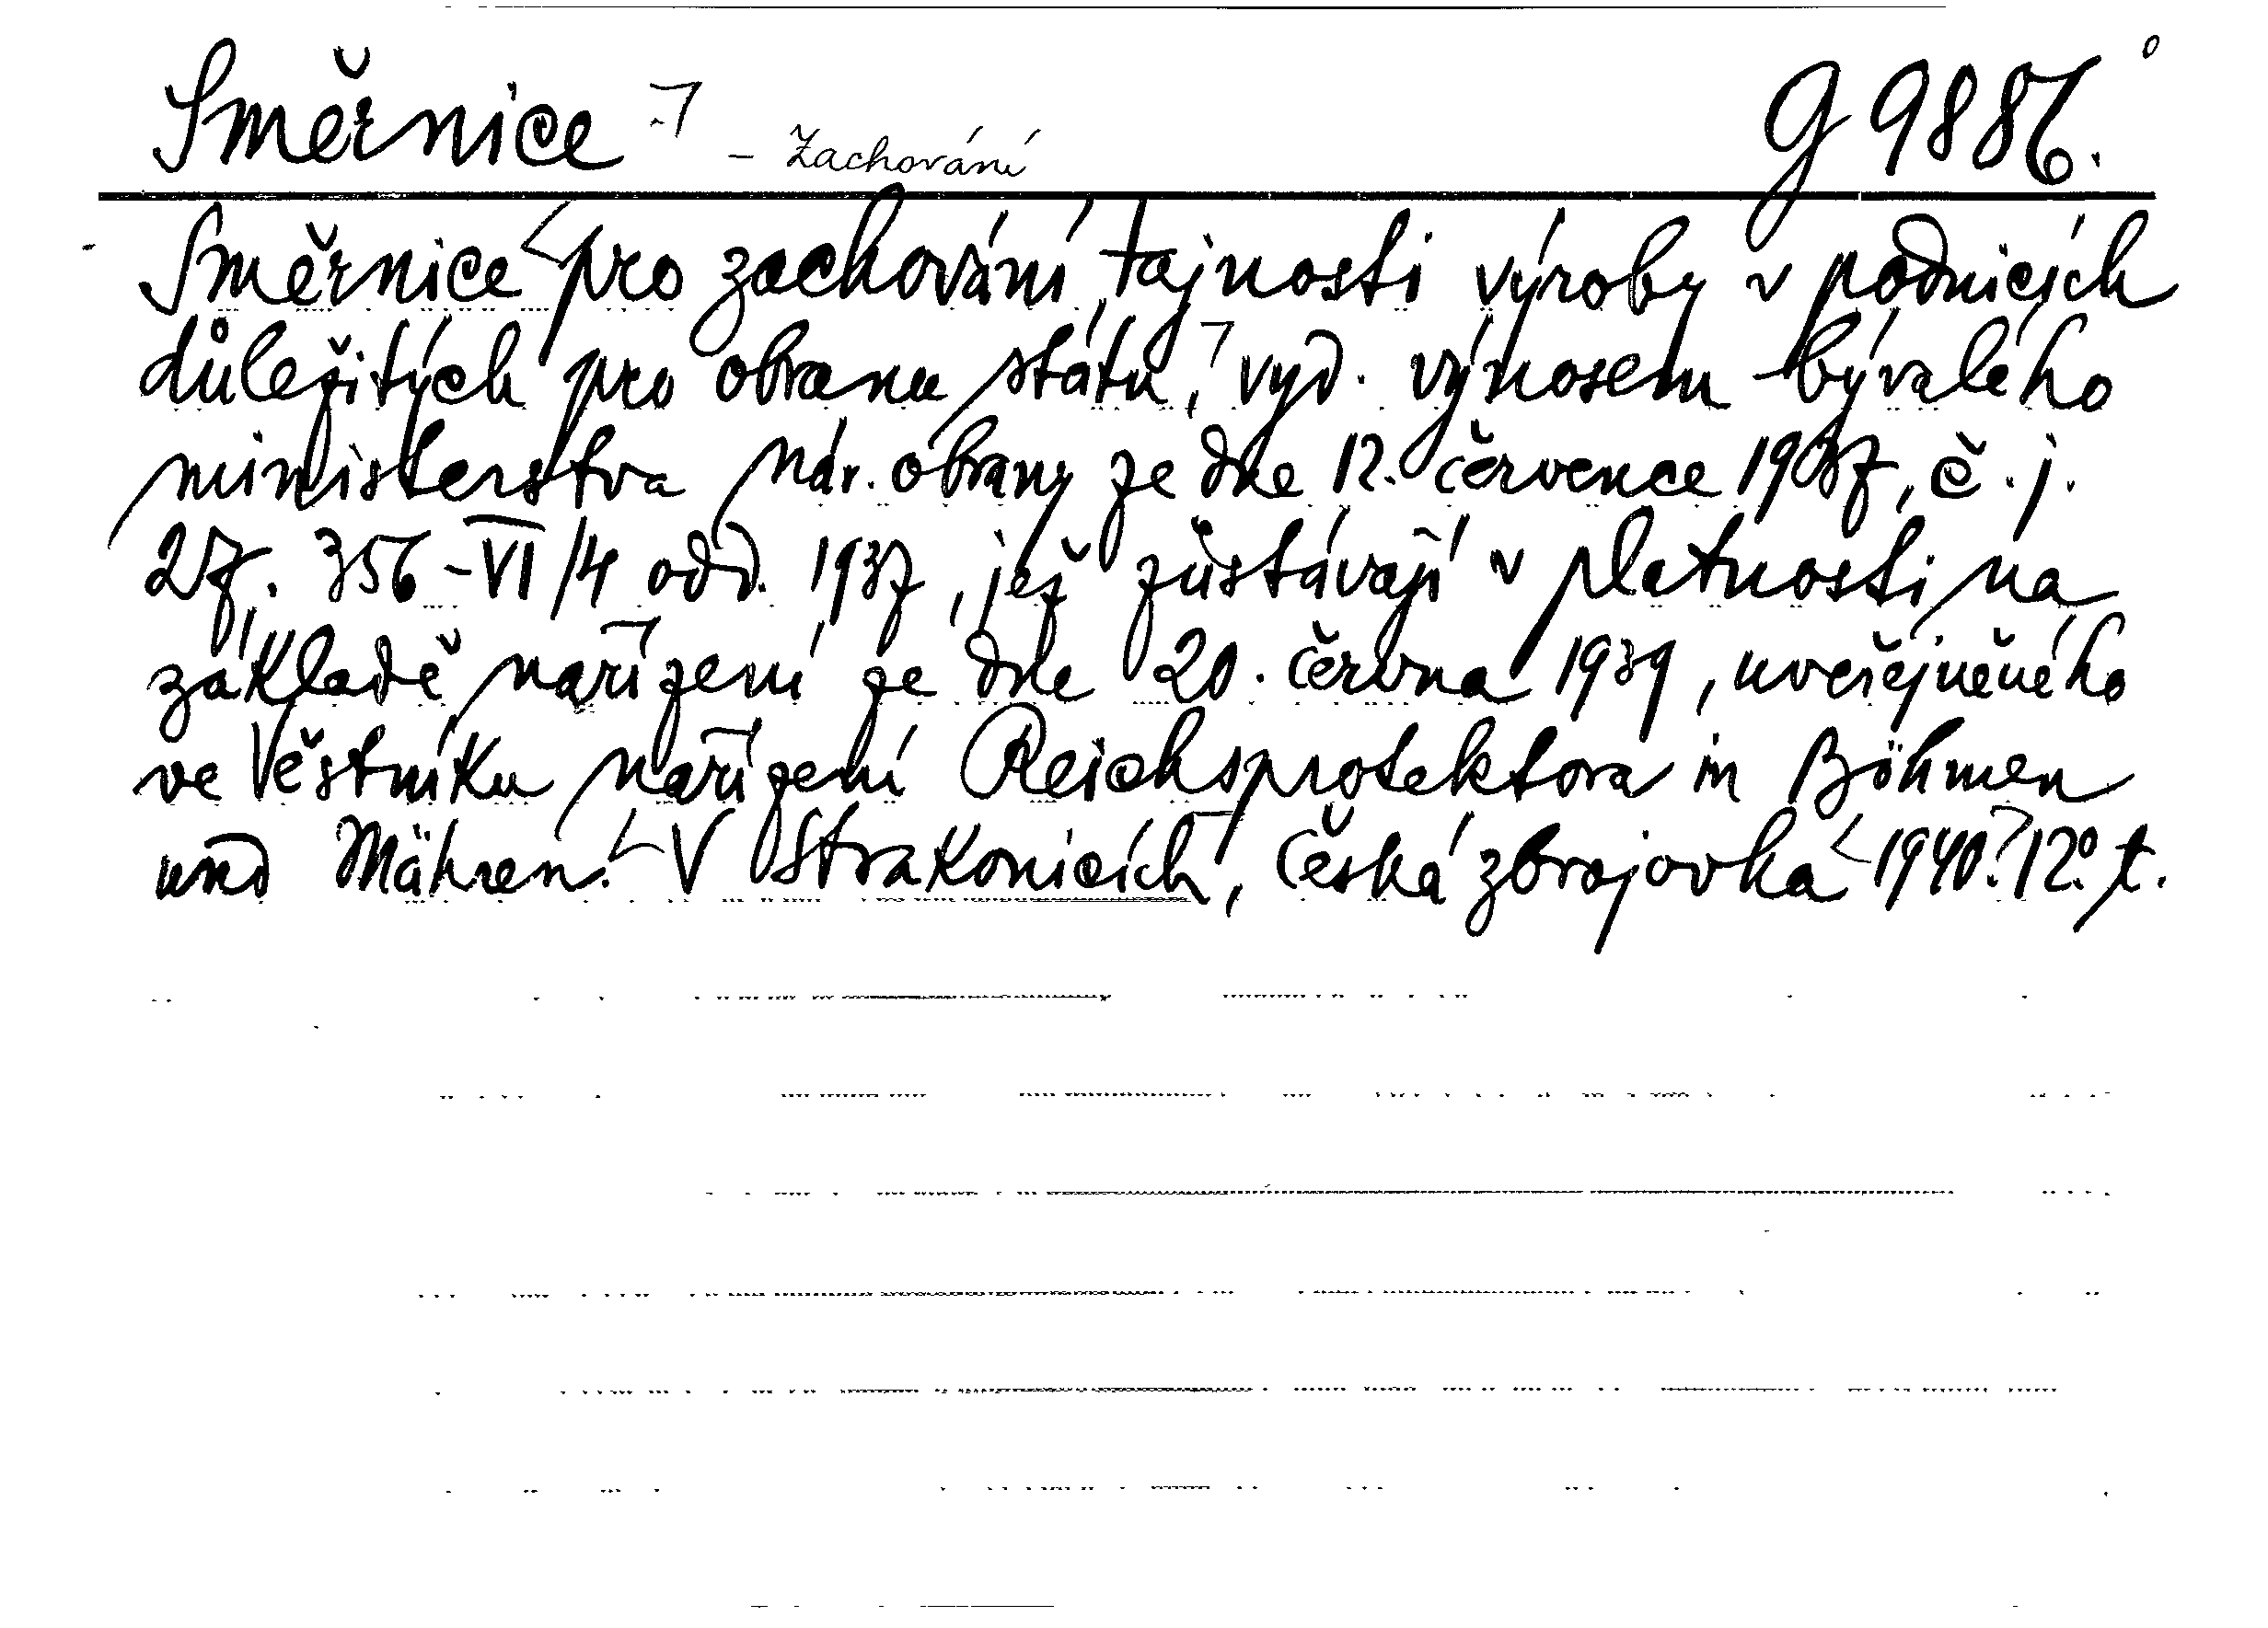 Směrnice - Zachování G 9886.
Směrnice pro zachování tajnosti výroby v podnicích
důležitých pro obranu státu, vyd. výnosem bývalého
ministerstva nár. obrany ze dne 12. července 1937, č. j.
27. 356 - VI/4 odd. 1937, jež zůstávají v platnosti na
základě nařízení ze dne 20. června 1939, uveřejněného
ve Věstníku nařízení Reichsprotektora in Böhmen
und Mähren. V Strakonicích, Česká zbrojovka 1940. 12°. t.